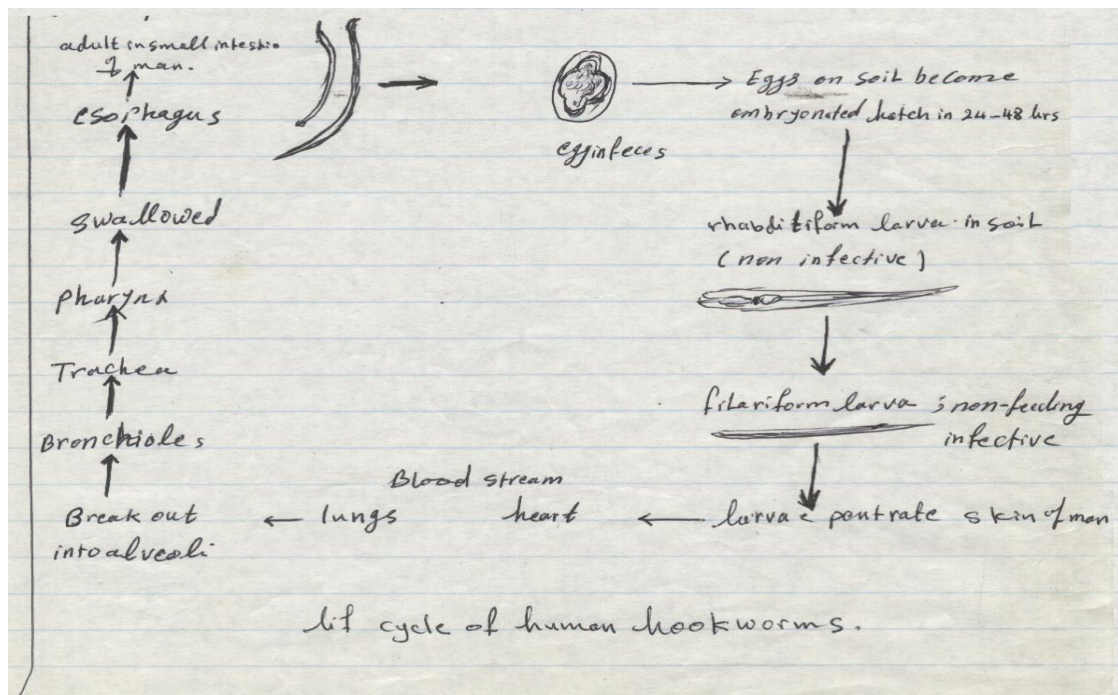 adult in small intestin
of man.
esophagus
Swallowed
Pharynx
Trachea
Bronchioles
Break out
into alveoli
egg in feces
Eggs on soil become
embryonated hatch in 24-48 hrs
rhabditiform larva in soil
(non infective)
filariform larva ; non-feeding
infective
larvae pentrate skin of man
Blood stream
heart
lungs
lif cycle of human hookworms.